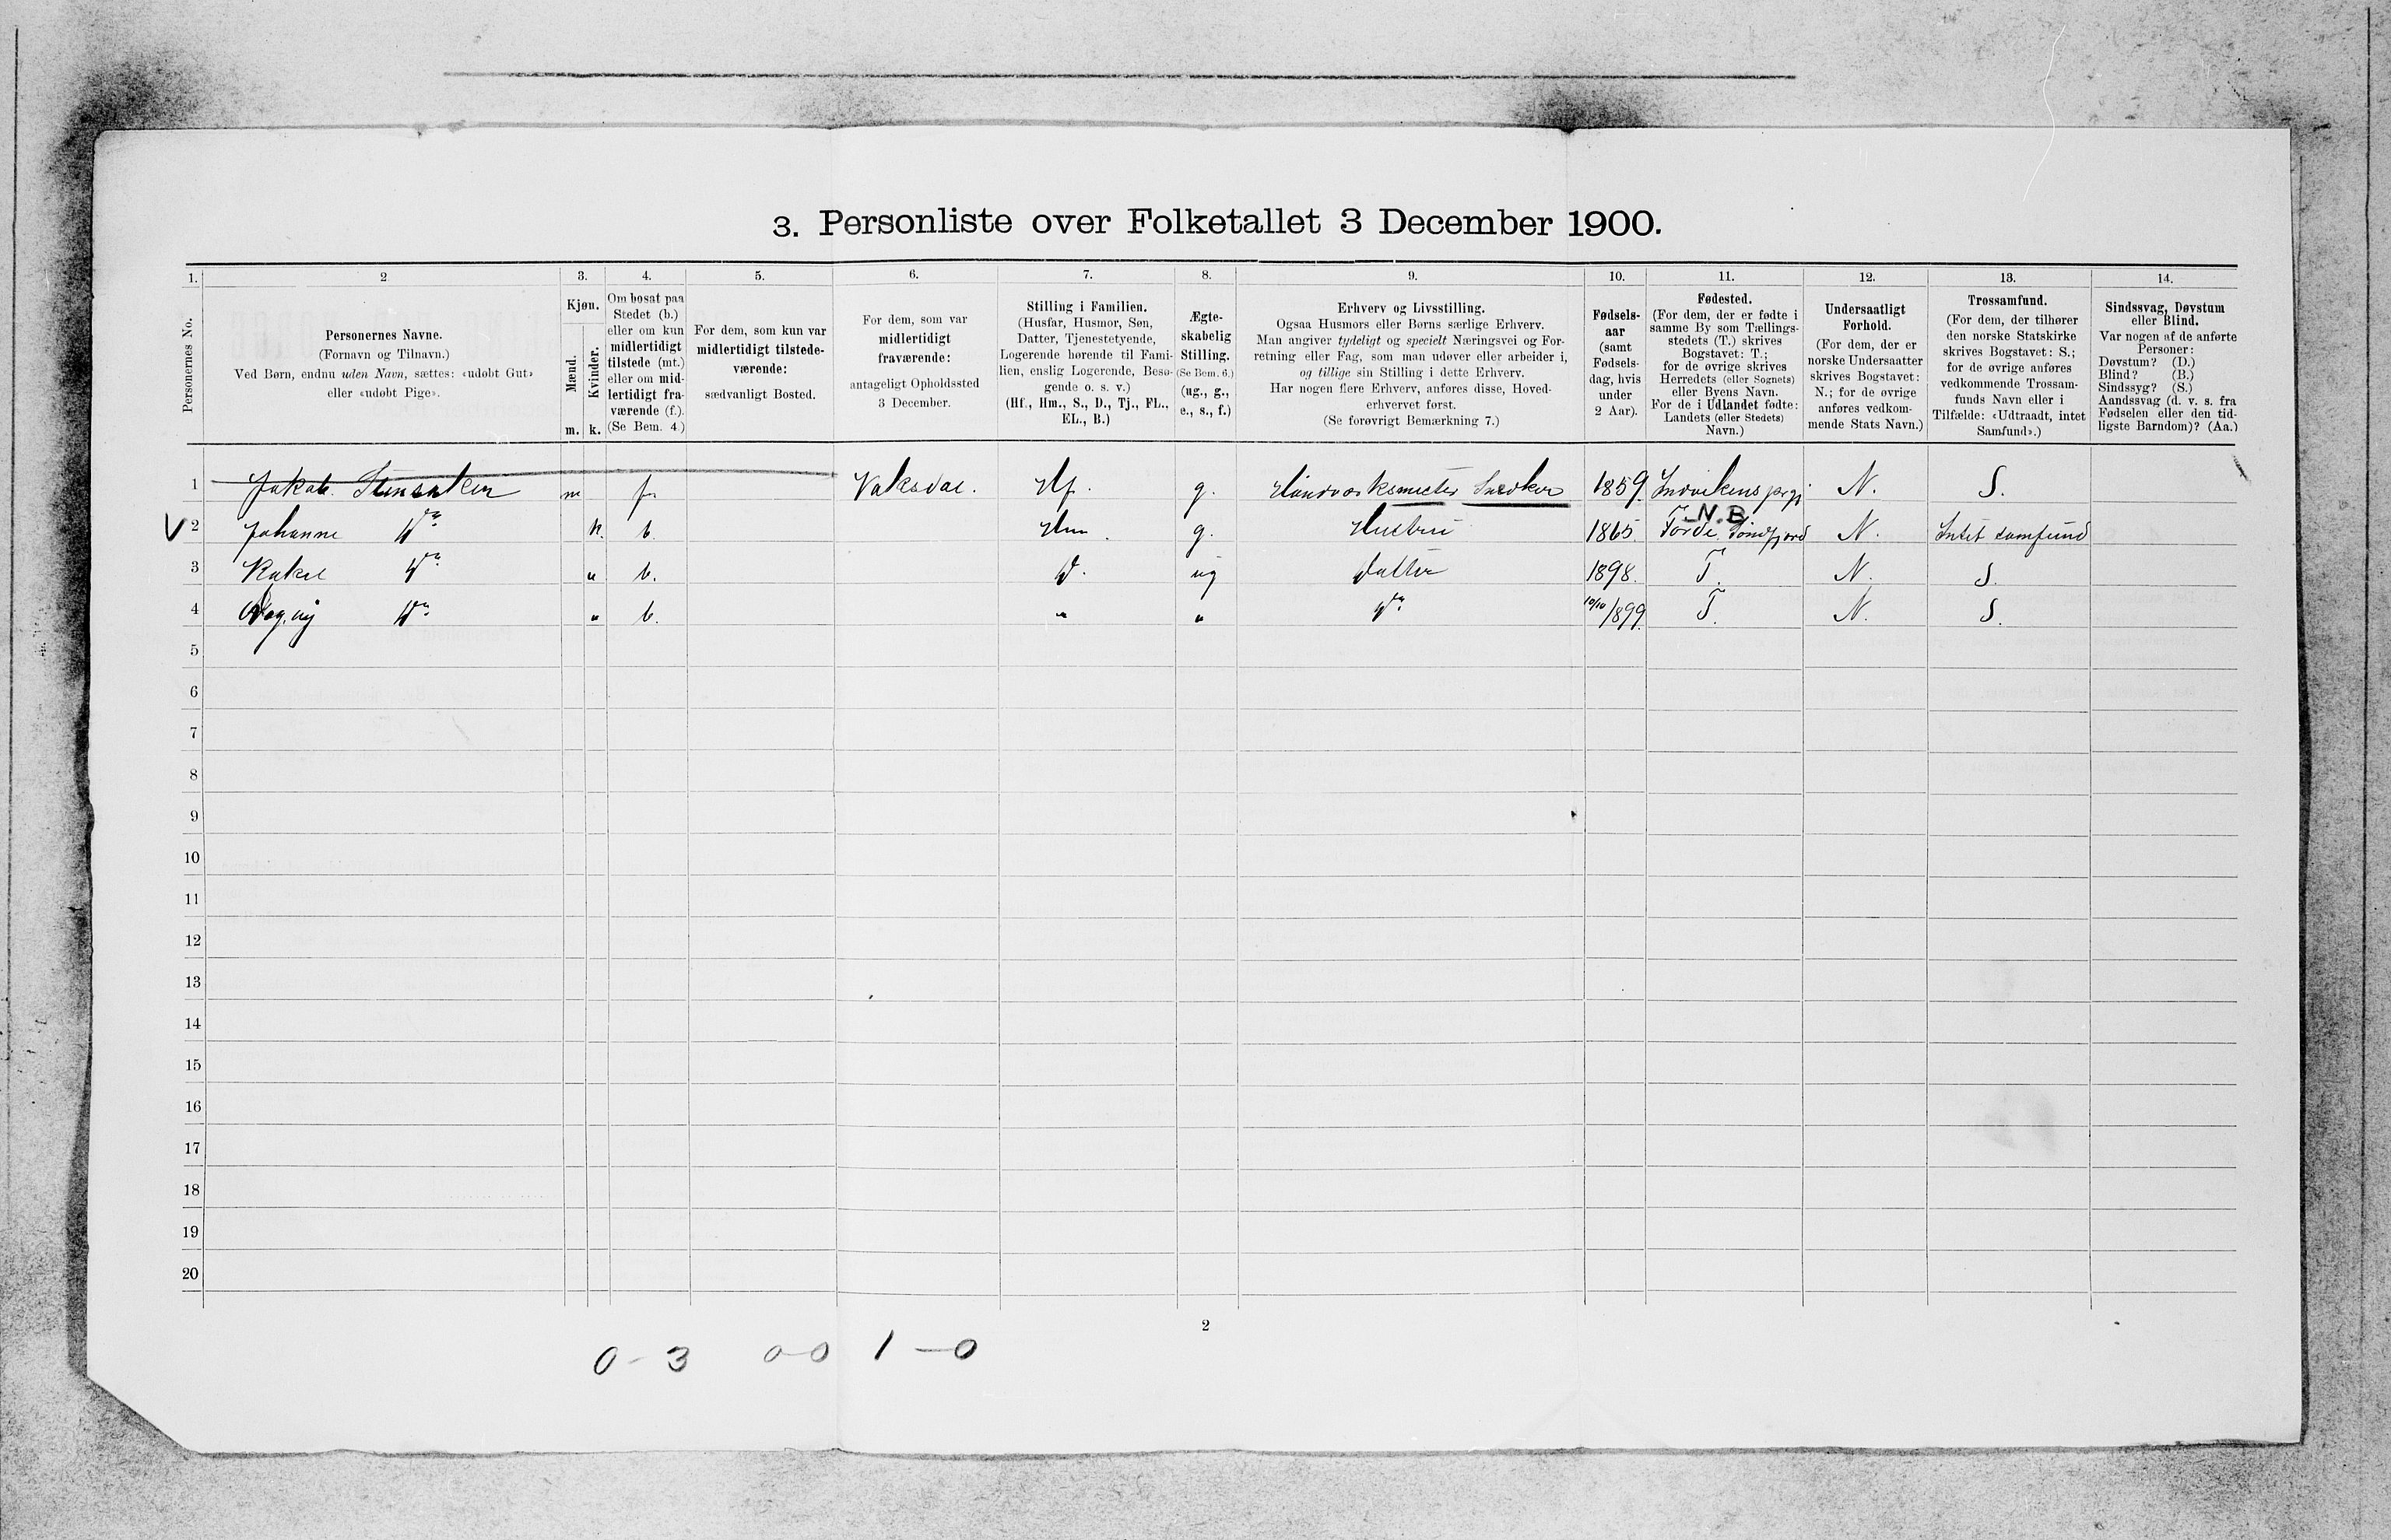 3. Personliste over Folketallet 3 December 1900.
1. 2 3. 4. 5. 6. 7. 8. 9. 10. 11. 12. 13. 14.
Personernes No.
Personernes Navne.
(Fornavn og Tilnavn.)
Ved Børn, endnu uden Navn, sættes: «udøbt Gut»
eller «udøbt Pige».
Kjøn.
Mænd.
m.
Kvinder.
k.
Om bosat paa
Stedet (b.)
eller om kun
midlertidigt
tilstede (mt.)
eller om mid-
lertidigt fra-
værende (f.).
(Se Bem. 4.)
For dem, som kun var
midlertidigt tilstede-
værende:
sædvanligt Bosted.
For dem, som var
midlertidigt
fraværende:
antageligt Opholdssted
3 December.
Stilling i Familien.
(Husfar, Husmor, Søn,
Datter, Tjenestetyende,
Logerende hørende til Fami-
lien, enslig Logerende, Besø-
gende o. s. v.)
(Hf., Hm., S., D., Tj., FL.,
EL., B.)
Ægte-
skabelig
Stilling.
(Se Bem. 6.)
(ug., g.,
e., s., f.)
Erhverv og Livsstilling.
Ogsaa Husmors eller Børns særlige Erhverv.
Man angiver tydeligt og specielt Næringsvei og For-
retning eller Fag, som man udøver eller arbeider i,
og tillige sin Stilling i dette Erhverv.
Har nogen flere Erhverv, anføres disse, Hoved-
erhvervet først.
(Se forøvrigt Bemærkning 7.)
Fødsels-
aar
(samt
Fødsels-
dag, hvis
under
2 Aar).
Fødested.
(For dem, der er fødte i
samme By som Tællings-
stedets (T.) skrives
Bogstavet: T.;
for de øvrige skrives
Herredets (eller Sognets)
eller Byens Navn.
For de i Udlandet fødte:
Landets (eller Stedets)
Navn.)
Undersaatligt
Forhold.
(For dem, der er
norske Undersaatter
skrives Bogstavet:
N.; for de øvrige
anføres vedkom-
mende Stats Navn.)
Trossamfund.
(For dem, der tilhører
den norske Statskirke
skrives Bogstavet: S.;
for de øvrige anføres
vedkommende Trossam-
funds Navn eller i
Tilfælde: «Udtraadt, intet
Samfund».)
Sindssvag, Døvstum
eller Blind.
Var nogen af de anførte
Personer:
Døvstum? (D.)
Blind? (B.)
Sindssyg? (S.)
Aandssvag (d. v. s. fra
Fødselen eller den tid-
ligste Barndom)? (Aa.)
1 Jakob. m f. Vaksdal. Hf. g. Snedker 1859 N. S.
N.B
V 2 Johanne Do k. b. Hm. g. Hustru 1865. Førde Søndfjord N. Intet samfund
3 Rakel Do " b. D. ug Datter 1898. T. N. S.
4 Dagny Do " b. " " Do 10/10 1899 T. N. S.
5
6
7
8
9
10
11
12
13
14
15
16
17
18
19
20
2
0-3 0-0 1-0